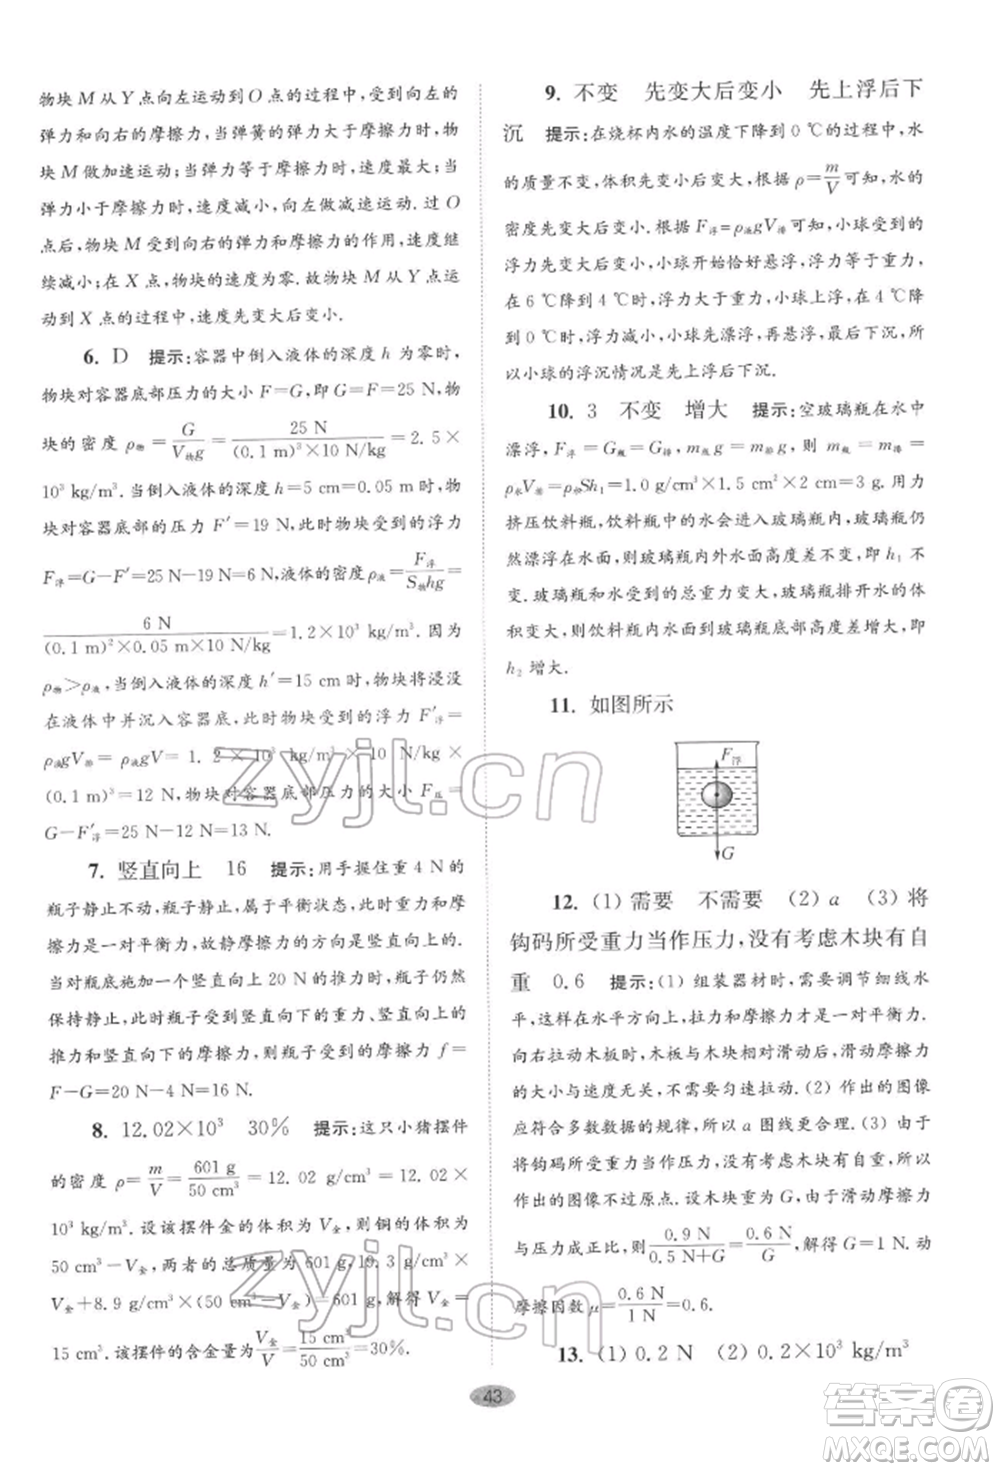 物块 M 从 Y 点向左运动到 O 点的过程中,受到向左的
弹力和向右的摩擦力,当弹簧的弹力大于摩擦力时,物
块 M 做加速运动;当弹力等于摩擦力时,速度最大;当
弹力小于摩擦力时,速度减小,向左做减速运动.过 O
点后,物块 M 受到向右的弹力和摩擦力的作用,速度继
续减小;在 X 点,物块的速度为零.故物块 M 从 Y 点运
动到 X 点的过程中,速度先变大后变小.
6. D 提示:容器中倒入液体的深度 h 为零时,
物块对容器底部压力的大小 F=G,即 G=F=25 N,物
块的密度 ρ物=G/V物g=25 N/((0.1 m)³×10 N/kg)=2.5×
10³ kg/m³.当倒入液体的深度 h=5 cm=0.05 m 时,物
块对容器底部的压力 F′=19 N,此时物块受到的浮力
F浮=G−F′=25 N−19 N=6 N,液体的密度ρ液=F浮/S物hg=
6 N/((0.1 m)²×0.05 m×10 N/kg)=1.2×10³ kg/m³.因为
ρ物>ρ液,当倒入液体的深度 h′=15 cm 时,物块将浸没
在液体中并沉入容器底,此时物块受到的浮力 F′浮=
ρ液gV排=ρ液gV=1.2×10³ kg/m³×10 N/kg×
(0.1 m)³=12 N,物块对容器底部压力的大小 F压=
G−F′浮=25 N−12 N=13 N.
7. 竖直向上 16 提示:用手握住重 4 N 的
瓶子静止不动,瓶子静止,属于平衡状态,重力和摩
擦力是一对平衡力,故静摩擦力的方向是竖直向上.
若另一人对瓶底施加一个竖直向上 20 N 的推力时,瓶子仍然
保持静止,此时瓶子受到竖直向下的重力、竖直向上的
推力和竖直向下的摩擦力,则瓶子受到的摩擦力 f=
F−G=20 N−4 N=16 N.
8. 12.02×10³ 30% 提示:这只小猪摆件
的密度 ρ=m/V=601 g/50 cm³=12.02 g/cm³=12.02×
10³ kg/m³.设该摆件金的体积为 V金,则铜的体积为
50 cm³−V金;该摆件的总质量为 601 g,19.3 g/cm³×
V金+8.9 g/cm³×(50 cm³−V金)=601 g,解得 V金=
15 cm³.该摆件的含金量为V金/V=15 cm³/50 cm³=30%.
9. 不变 先变大后变小 先上浮后下
沉 提示:在烧杯内水的温度下降到 0 ℃的过程中,水
的质量不变,体积先变小后变大,根据 ρ=m/V可知,水的
密度先变大后变小.根据 F浮=ρ液gV排可知,小球受到的
浮力先变大后变小.小球开始恰好悬浮,浮力等于重力,
在 6 ℃降到 4 ℃时,浮力大于重力,小球上浮,在 4 ℃降
到 0 ℃时,浮力减小,小球先漂浮,再悬浮,最后下沉,所
以小球的浮沉情况是先上浮后下沉.
10. 3 不变 增大 提示:空玻璃瓶在水中
漂浮,F浮=G瓶=G排,m瓶g=m排g,则 m瓶=m排=
ρ水V排=ρ水Sh₁=1.0 g/cm³×2 cm²×1.5 cm=3 g.用力
挤压饮料瓶,饮料瓶中的水会进入玻璃瓶内,玻璃瓶仍
然漂浮在水面,则玻璃瓶内外水面高度差不变,即 h₁ 不
变.玻璃瓶和水受到的总重力变大,玻璃瓶排开水的体
积变大,则饮料瓶内水面到玻璃瓶底部高度差增大,即
h₂ 增大.
11. 如图所示
F浮
G
12. (1) 需要 不需要 (2) a (3) 将
钩码所受重力当作压力,没有考虑木块有自
重 0.6 提示:(1) 组装器材时,需要调节细线水
平,这样在水平方向上,拉力和摩擦力才是一对平衡力.
向右拉动木板时,木板与木块相对滑动,滑动摩擦力
的大小与速度无关,不需要匀速拉动. (2) 作出的图像
应符合多数数据的规律,所以 a 图线更合理. (3) 由于
将钩码所受重力当作压力,没有考虑木块有自重,所以
作出的图像不过原点.设木块重为 G,由于滑动摩擦力
与压力成正比,则0.9 N/(0.5 N+G)=0.6 N/G,解得 G=1 N,故
摩擦因数 μ=0.6 N/1 N=0.6.
13. (1) 0.2 N (2) 0.2×10³ kg/m³
43
zyjl.cn
zyjl.cn
答案圈
MXQE.COM